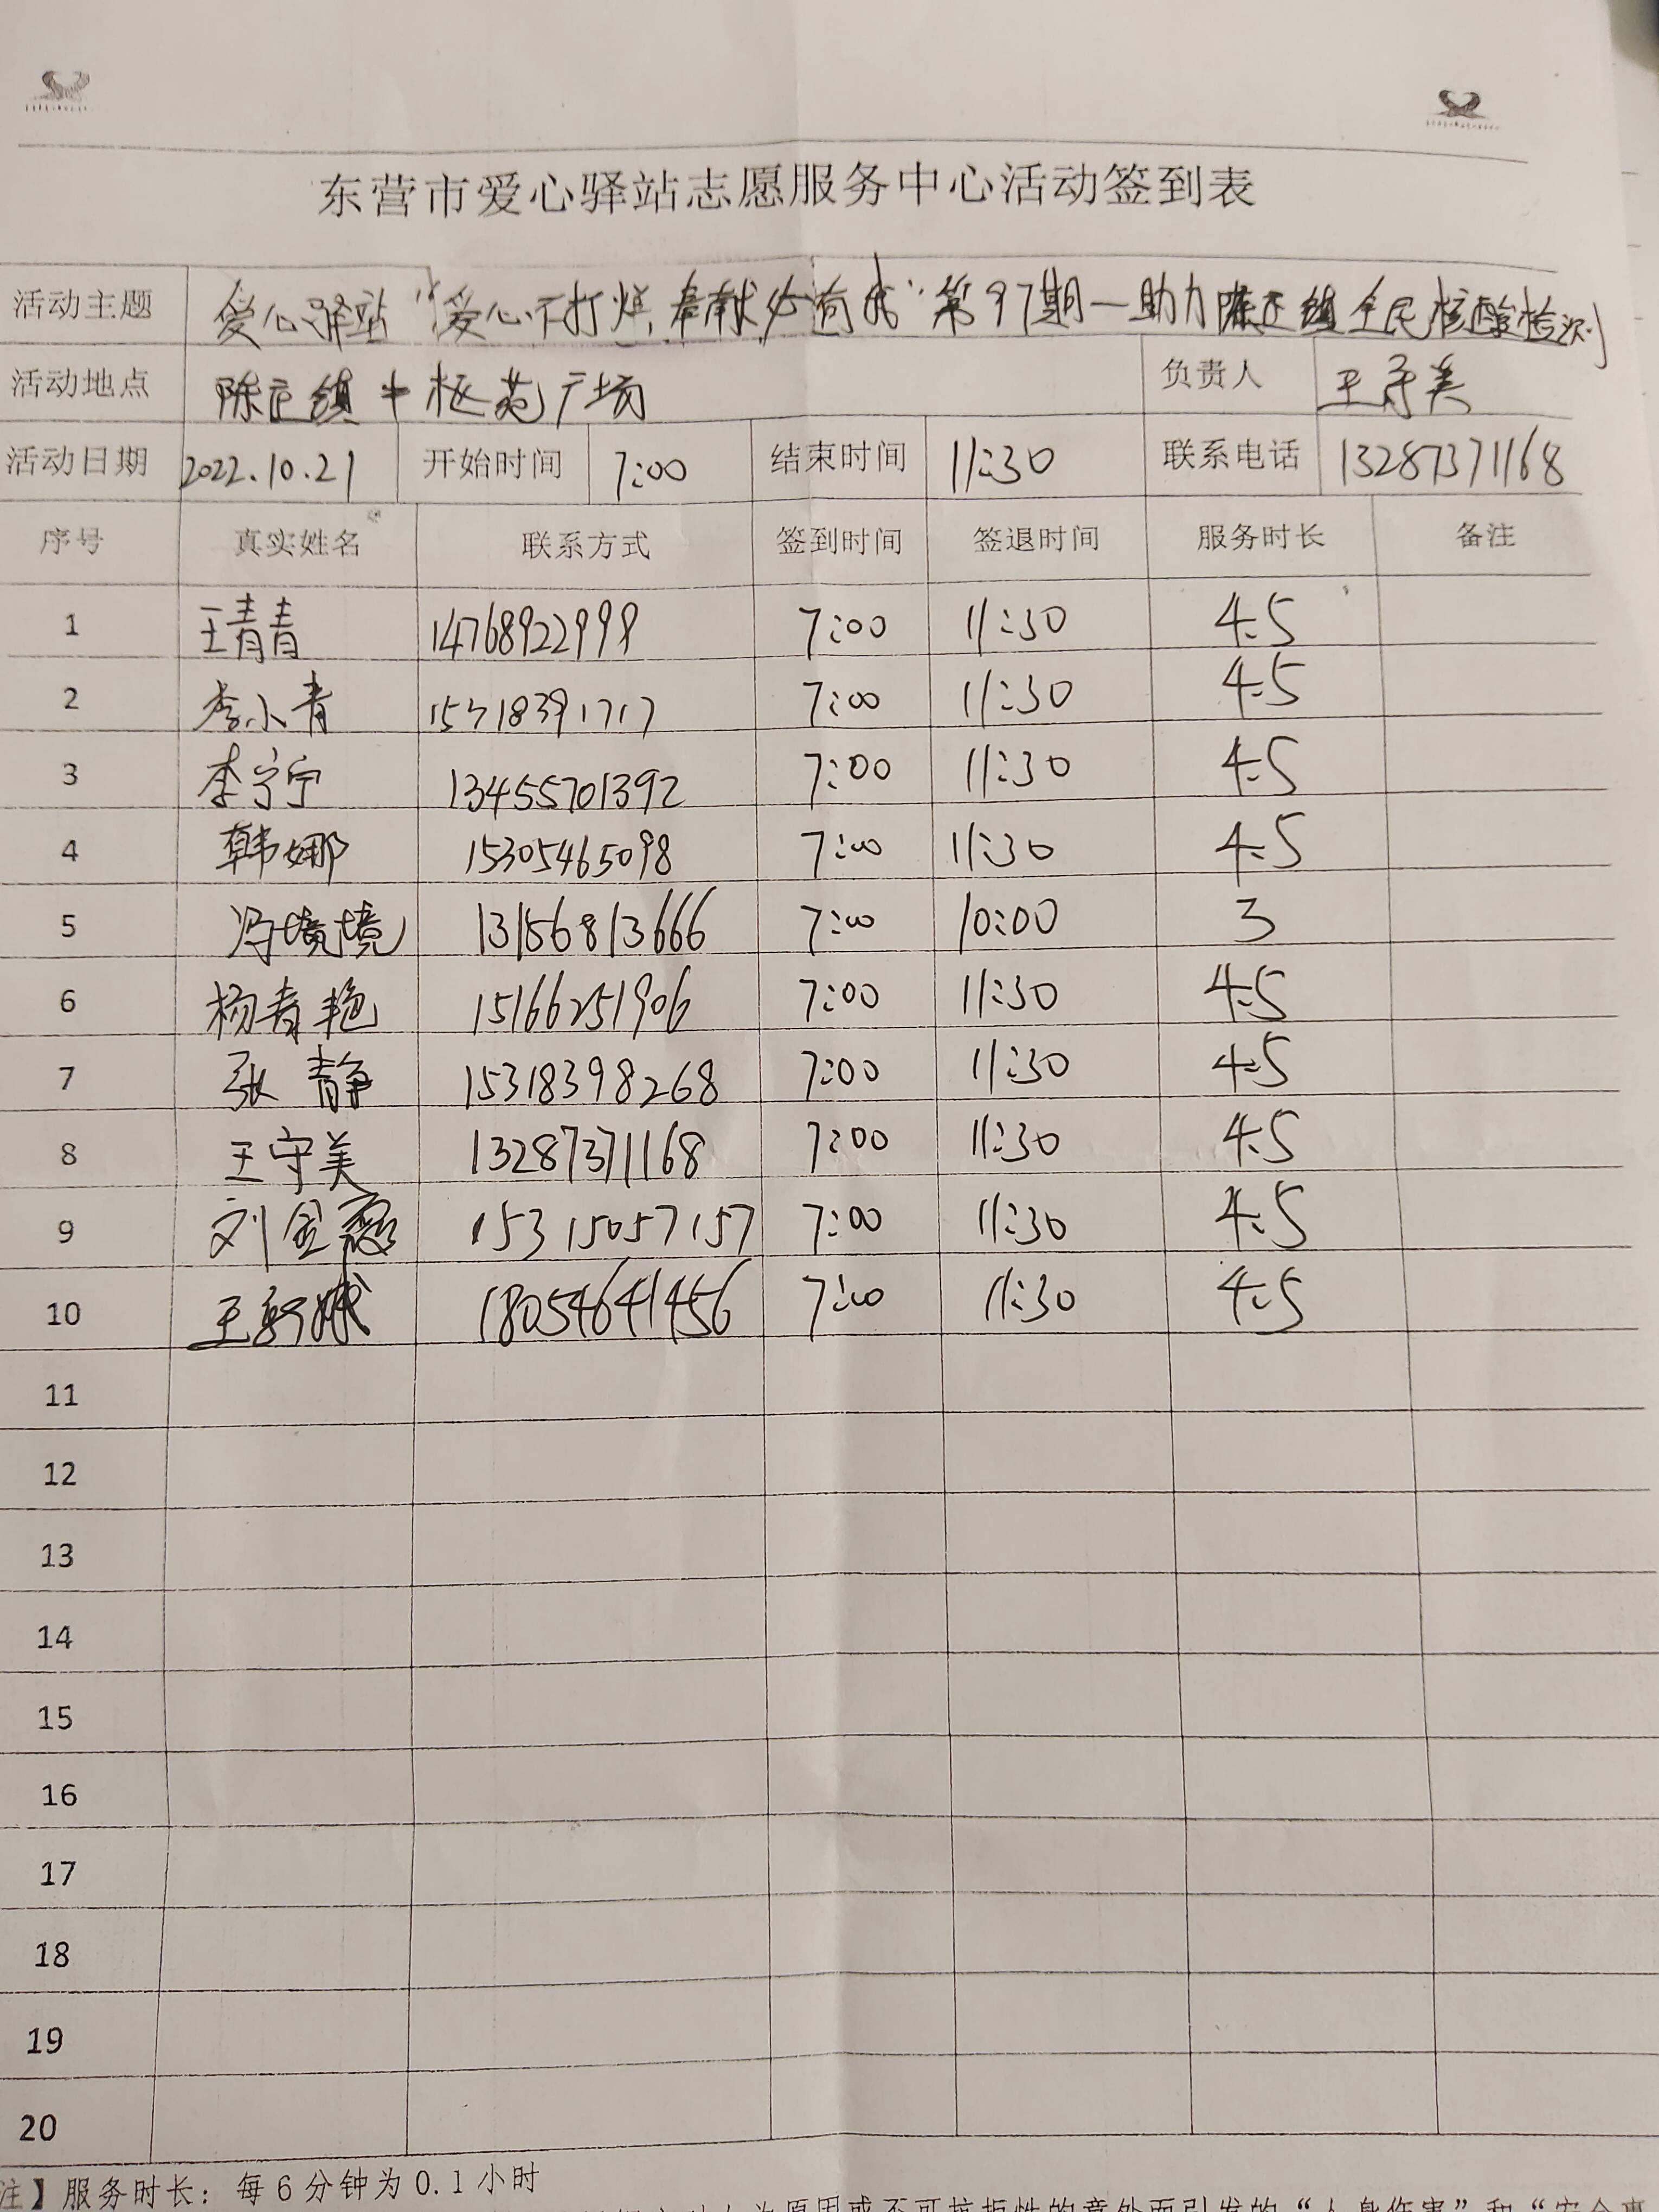 东营市爱心驿站志愿服务中心活动签到表
活动主题 爱心驿站“爱心不打烊,奉献必有我”第97期—助力陈庄镇全民核酸检测
活动地点 陈庄镇中枢苑广场 负责人 王守美
活动日期 2022.10.21 开始时间 7:00 结束时间 11:30 联系电话 13287371168
序号 真实姓名 联系方式 签到时间 签退时间 服务时长 备注
1 王青青 14768922999 7:00 11:30 4.5
2 李小青 15318391717 7:00 11:30 4.5
3 李宁宁 13455701392 7:00 11:30 4.5
4 韩娜 15305465098 7:00 11:30 4.5
5 冯境境 13156813666 7:00 10:00 3
6 杨春艳 15166251906 7:00 11:30 4.5
7 张静 15318398268 7:00 11:30 4.5
8 王守美 13287371168 7:00 11:30 4.5
9 刘金 15315057157 7:00 11:30 4.5
10 王 18054641456 7:00 11:30 4.5
11
12
13
14
15
16
17
18
19
20
注】服务时长:每6分钟为0.1小时
原因或不可抗拒性的意外而引发的“人身伤害”和“安全事